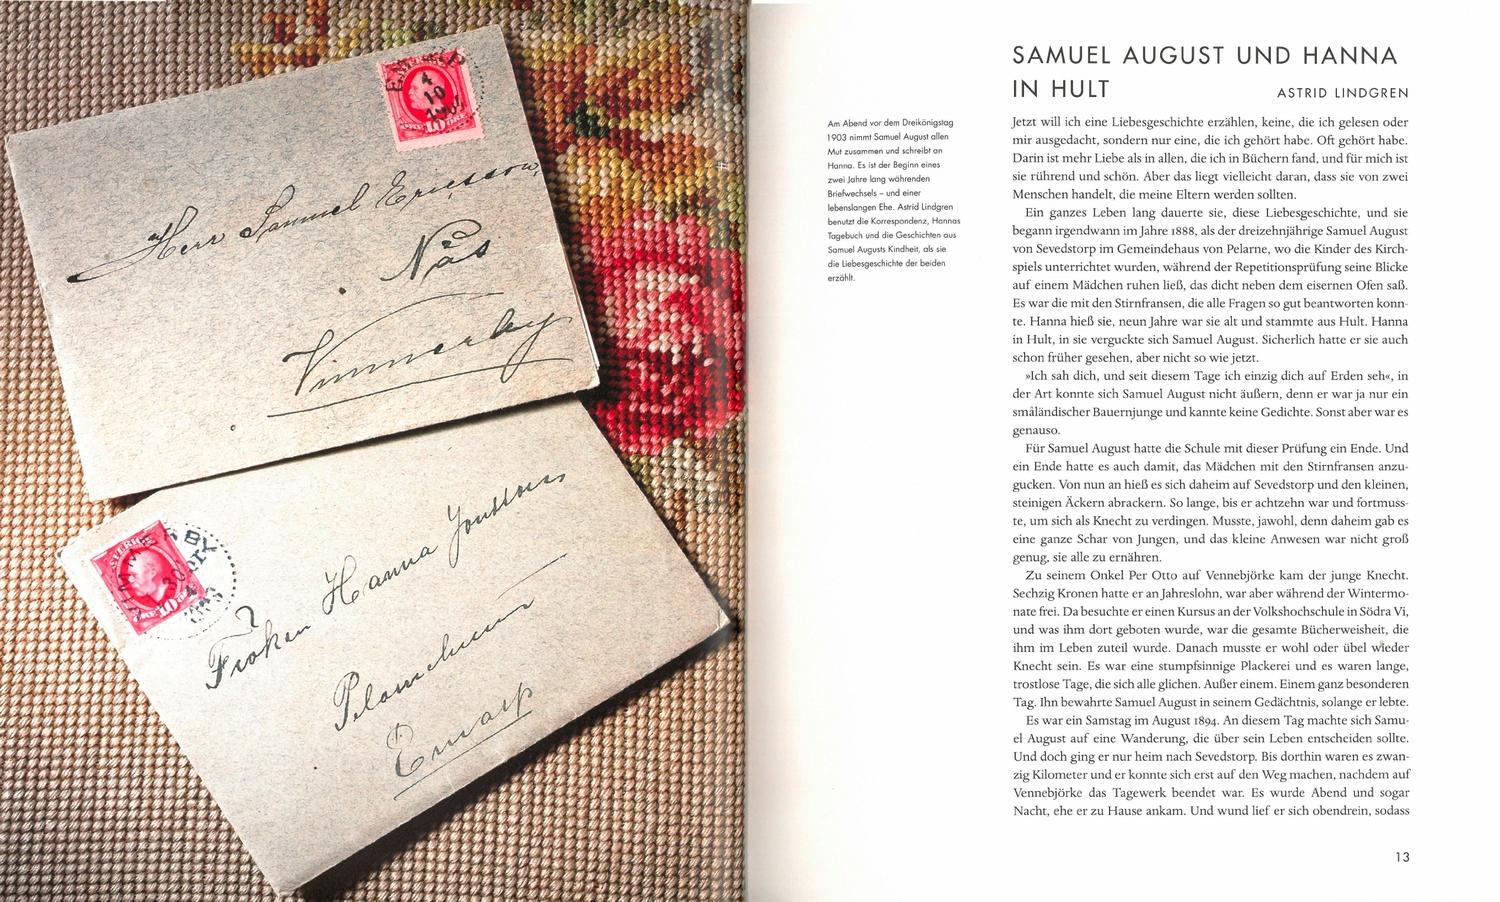 EMARP
4
10
10 ÖRE
Herr Samuel Ericsson,
Näs
Vimmerby
SVERIGE
VIMMERBY
30
10
Fröken Hanna Jonsson
Pelarnehult
Emarp
SAMUEL AUGUST UND HANNA
IN HULT
ASTRID LINDGREN
Am Abend vor dem Dreikönigstag
1903 nimmt Samuel August allen
Mut zusammen und schreibt an
Hanna. Es ist der Beginn eines
zwei Jahre lang währenden
Briefwechsels – und einer
lebenslangen Ehe. Astrid Lindgren
benutzt die Korrespondenz, Hannas
Tagebuch und die Geschichten aus
Samuel Augusts Kindheit, als sie
die Liebesgeschichte der beiden
erzählt.
Jetzt will ich eine Liebesgeschichte erzählen, keine, die ich gelesen oder
mir ausgedacht, sondern nur eine, die ich gehört habe. Oft gehört habe.
Darin ist mehr Liebe als in allen, die ich in Büchern fand, und für mich ist
sie rührend und schön. Aber das liegt vielleicht daran, dass sie von zwei
Menschen handelt, die meine Eltern werden sollten.
Ein ganzes Leben lang dauerte sie, diese Liebesgeschichte, und sie
begann irgendwann im Jahre 1888, als der dreizehnjährige Samuel August
von Sevedstorp im Gemeindehaus von Pelarne, wo die Kinder des Kirch-
spiels unterrichtet wurden, während der Repetitionsprüfung seine Blicke
auf einem Mädchen ruhen ließ, das dicht neben dem eisernen Ofen saß.
Es war die mit den Stirnfransen, die alle Fragen so gut beantworten konn-
te. Hanna hieß sie, neun Jahre war sie alt und stammte aus Hult. Hanna
in Hult, in sie verguckte sich Samuel August. Sicherlich hatte er sie auch
schon früher gesehen, aber nicht so wie jetzt.
»Ich sah dich, und seit diesem Tage ich einzig dich auf Erden seh«, in
der Art konnte sich Samuel August nicht äußern, denn er war ja nur ein
småländischer Bauernjunge und kannte keine Gedichte. Sonst aber war es
genauso.
Für Samuel August hatte die Schule mit dieser Prüfung ein Ende. Und
ein Ende hatte es auch damit, das Mädchen mit den Stirnfransen anzu-
gucken. Von nun an hieß es sich daheim auf Sevedstorp und den kleinen,
steinigen Äckern abrackern. So lange, bis er achtzehn war und fortmuss-
te, um sich als Knecht zu verdingen. Musste, jawohl, denn daheim gab es
eine ganze Schar von Jungen, und das kleine Anwesen war nicht groß
genug, sie alle zu ernähren.
Zu seinem Onkel Per Otto auf Vennebjörke kam der junge Knecht.
Sechzig Kronen hatte er an Jahreslohn, war aber während der Wintermo-
nate frei. Da besuchte er einen Kursus an der Volkshochschule in Södra Vi,
und was ihm dort geboten wurde, war die gesamte Bücherweisheit, die
ihm im Leben zuteil wurde. Danach musste er wohl oder übel wieder
Knecht sein. Es war eine stumpfsinnige Plackerei und es waren lange,
trostlose Tage, die sich alle glichen. Außer einem. Einem ganz besonderen
Tag. Ihn bewahrte Samuel August in seinem Gedächtnis, solange er lebte.
Es war ein Samstag im August 1894. An diesem Tag machte sich Samu-
el August auf eine Wanderung, die über sein Leben entscheiden sollte.
Und doch ging er nur heim nach Sevedstorp. Bis dorthin waren es zwan-
zig Kilometer und er konnte sich erst auf den Weg machen, nachdem auf
Vennebjörke das Tagewerk beendet war. Es wurde Abend und sogar
Nacht, ehe er zu Hause ankam. Und wund lief er sich obendrein, sodass
13